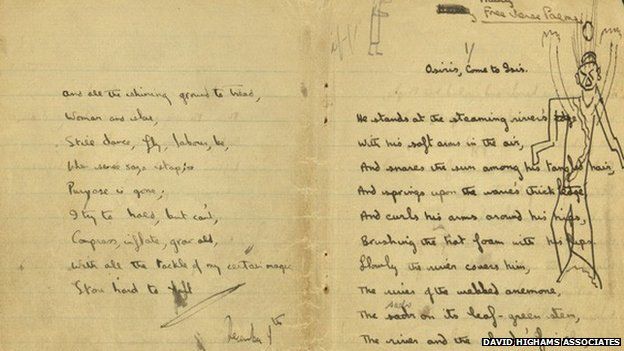 and all the shining ground to tread,
Woman and sloe,
Still dance, fly, labour, be,
sense says stop is
Purpose is gone;
I try to hold, but can't,
Compress, inflate, grow old,
With all the tackle of my certain magic
Stone hard to lift
December 9th
Free Verse Poems
Osiris, Come to Isis.
He stands at the steaming river's edge
With his soft arms in the air,
And snares the sun among his tangled hair,
And springs upon the wave's thick ledge
And curls his arms around his hips,
Brushing the hot foam with his lips.
Slowly the river covers him,
The river of the webbed anemone,
The sads on its leaf-green stem,
The river and the
DAVID HIGHAMS ASSOCIATES